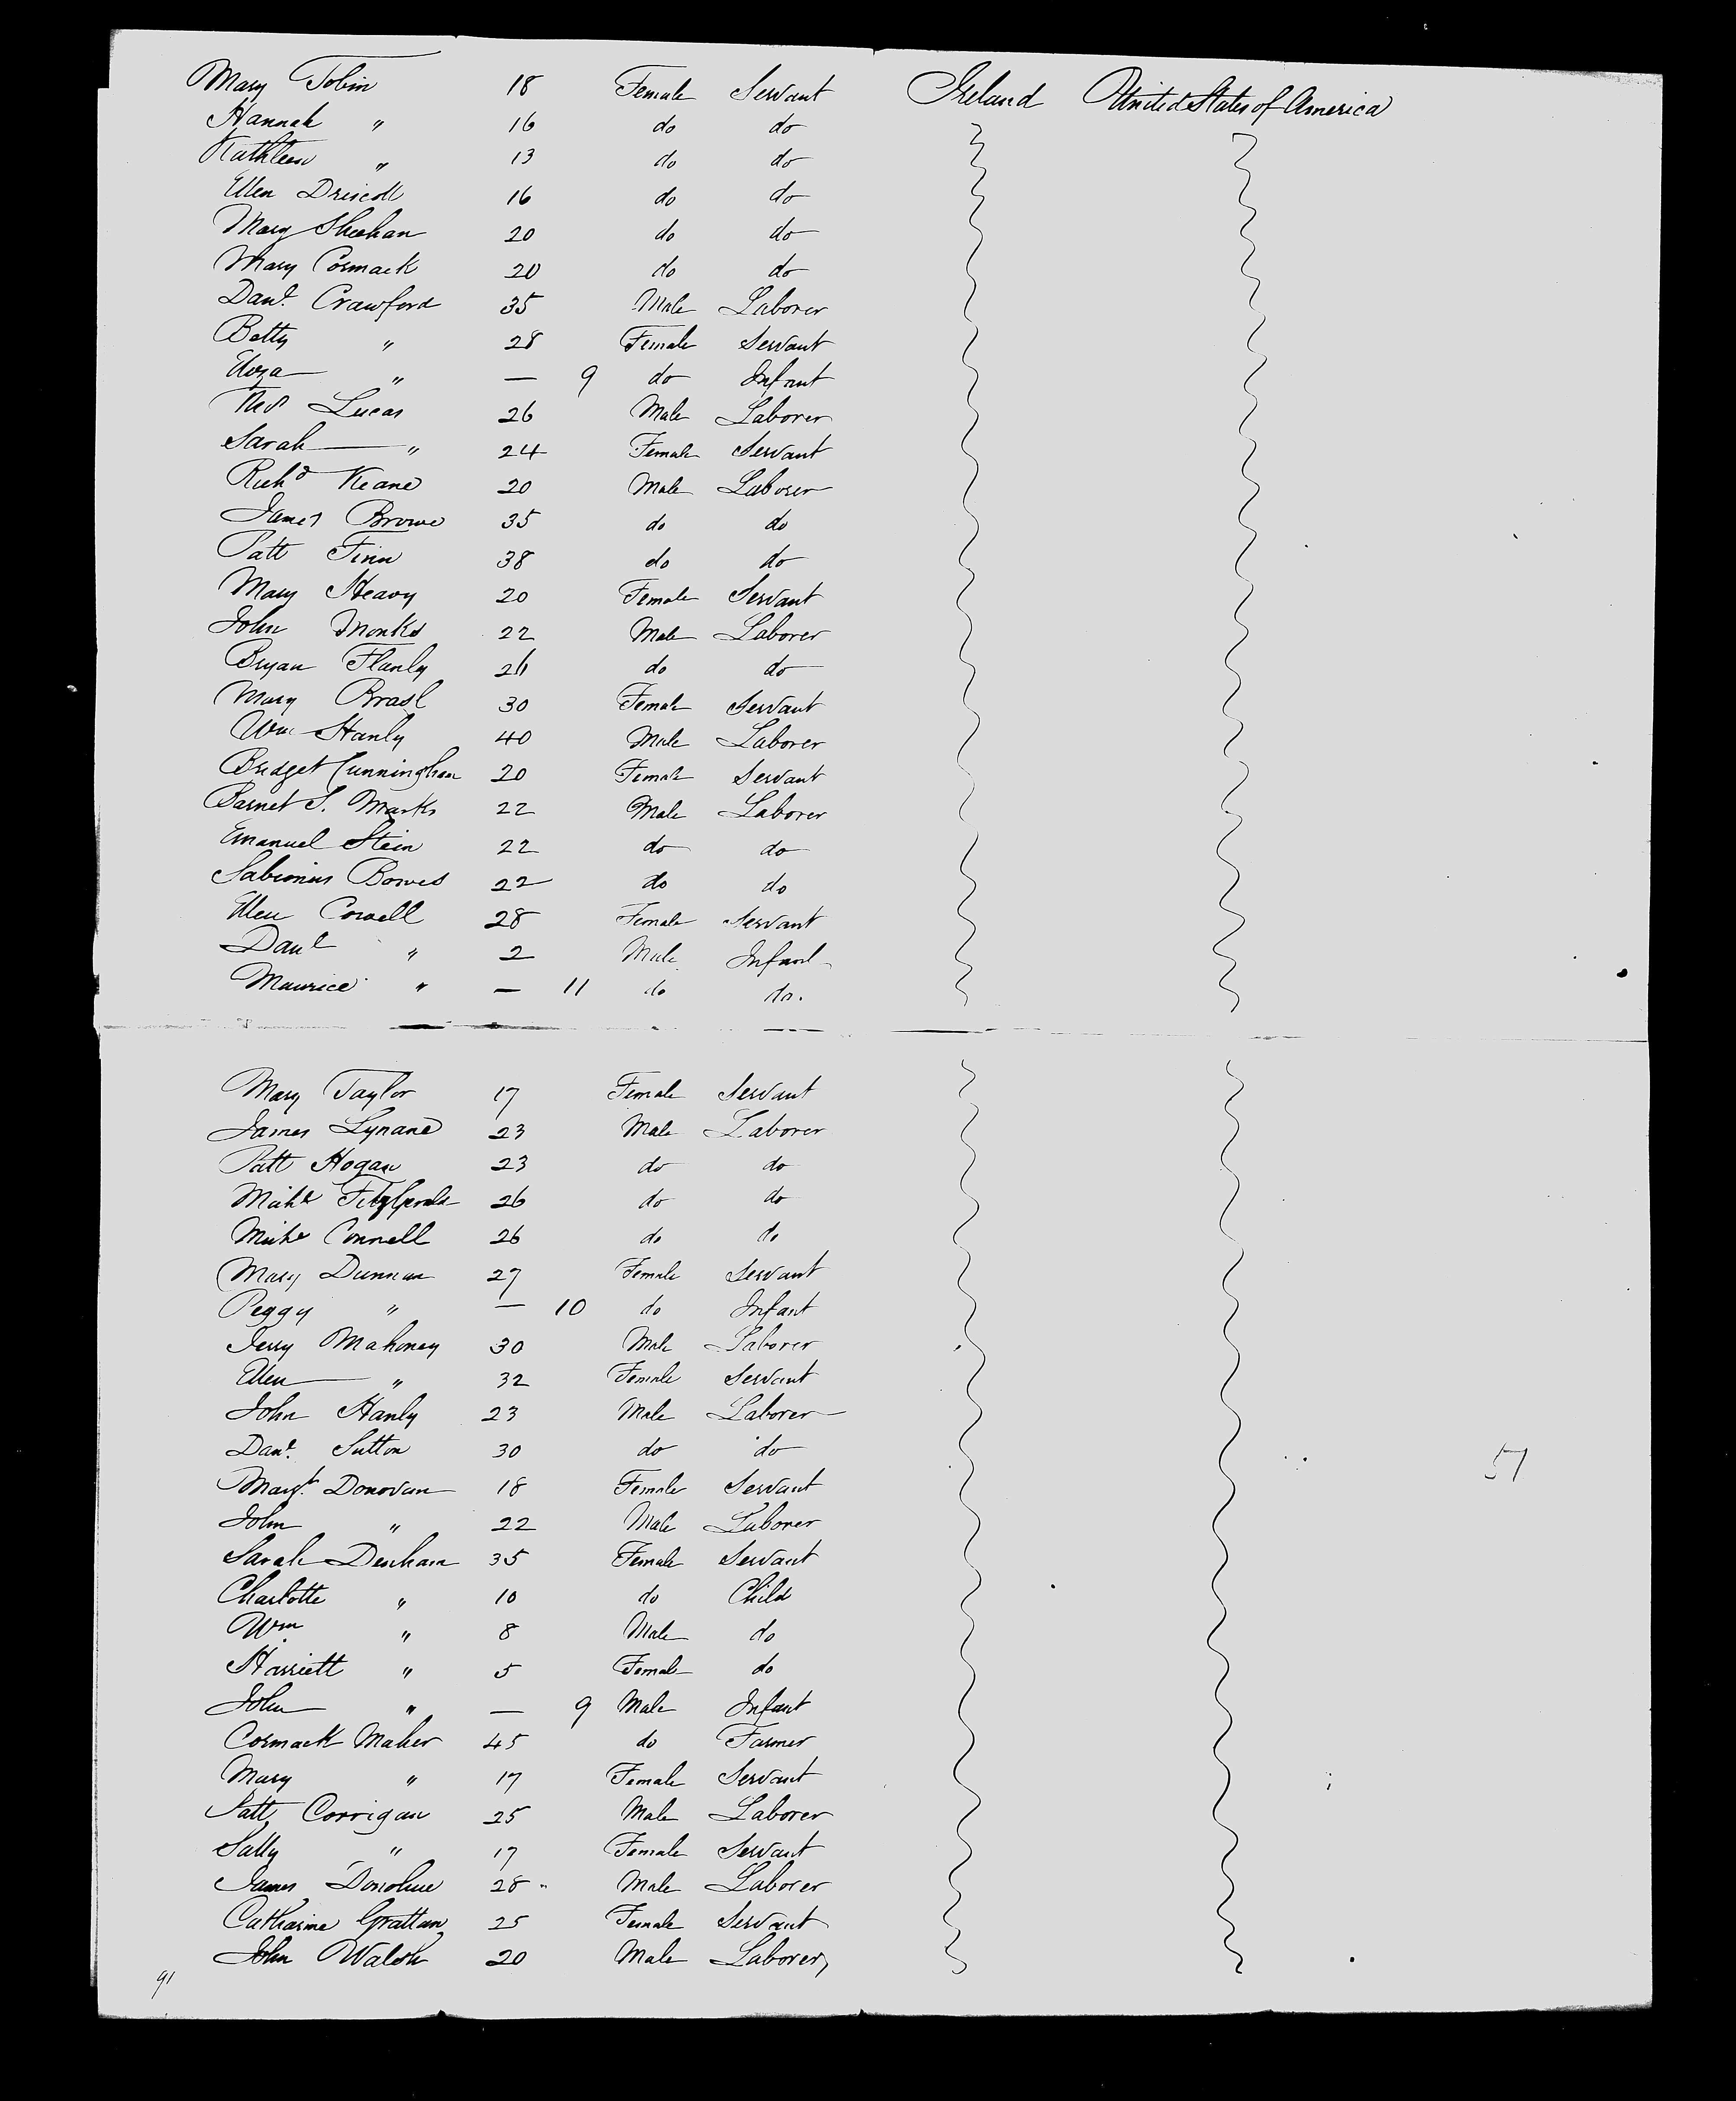 Mary Tobin 18 Female Servant Ireland United States of America
Hannah " 16 do do
Kathleen " 13 do do
Ellen Driscoll 16 do do
Mary Sheehan 20 do do
Mary Cormack 20 do do
Danl. Crawford 35 Male Laborer
Betty " 28 Female Servant
Eliza " — 9 do Infant
Thos Lucas 26 Male Laborer
Sarah " 24 Female Servant
Richd Keane 20 Male Laborer
James Browe 35 do do
Patt Finn 38 do do
Mary Heavy 20 Female Servant
John Monks 22 Male Laborer
Bryan Flanly 26 do do
Mary 30 Female Servant
Wm Hanly 40 Male Laborer
Bridget Cunningham 20 Female Servant
Barnet S. Marks 22 Male Laborer
Emanuel Stein 22 do do
22 do do
Ellen Cowell 28 Female Servant
Danl " 2 Male Infant
Maurice " — 11 do do.
Mary Taylor 17 Female Servant
James Lynane 23 Male Laborer
Patt Hogan 23 do do
Michl Fitzgerald 26 do do
Michl Connell 26 do do
Mary Dunnan 27 Female Servant
Peggy " — 10 do Infant
Jerry Mahoney 30 Male Laborer
Ellen " 32 Female Servant
John Hanly 23 Male Laborer
Danl. Sutton 30 do do
57
Margt. Donovan 18 Female Servant
John " 22 Male Laborer
Sarah Denham 35 Female Servant
Charlotte " 10 do Child
Wm " 8 Male do
Harriett " 5 Female do
John " — 9 Male Infant
Cormack Maher 45 do Farmer
Mary " 17 Female Servant
Patt Corrigan 25 Male Laborer
Sally " 17 Female Servant
James Donohue 28 Male Laborer
Catharine Grattan 25 Female Servant
John Walsh 20 Male Laborer
91